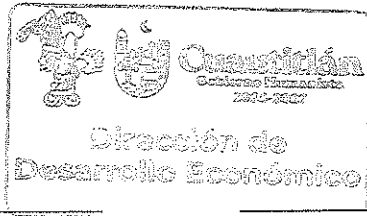 Cuautitlán
Gobierno Humanista
Dirección de
Desarrollo Económico